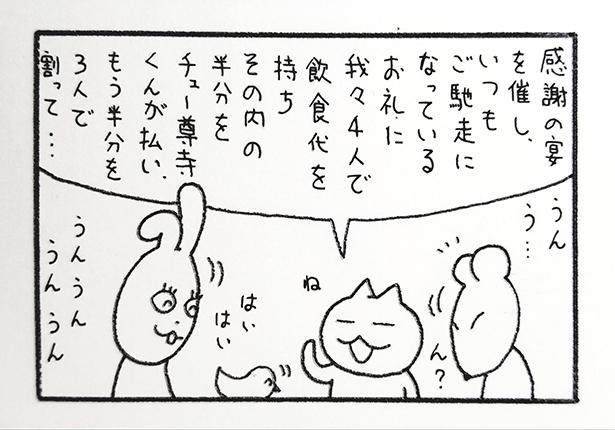 感謝の宴
を催し、
いつも
ご馳走に
なっている
お礼に
我々4人で
飲食代を
持ち
その内の
半分を
チュー尊寺
くんが払い、
もう半分を
3人で
割って…
うん
う…
ん?
ね
はい
はい
うんうん
うんうん